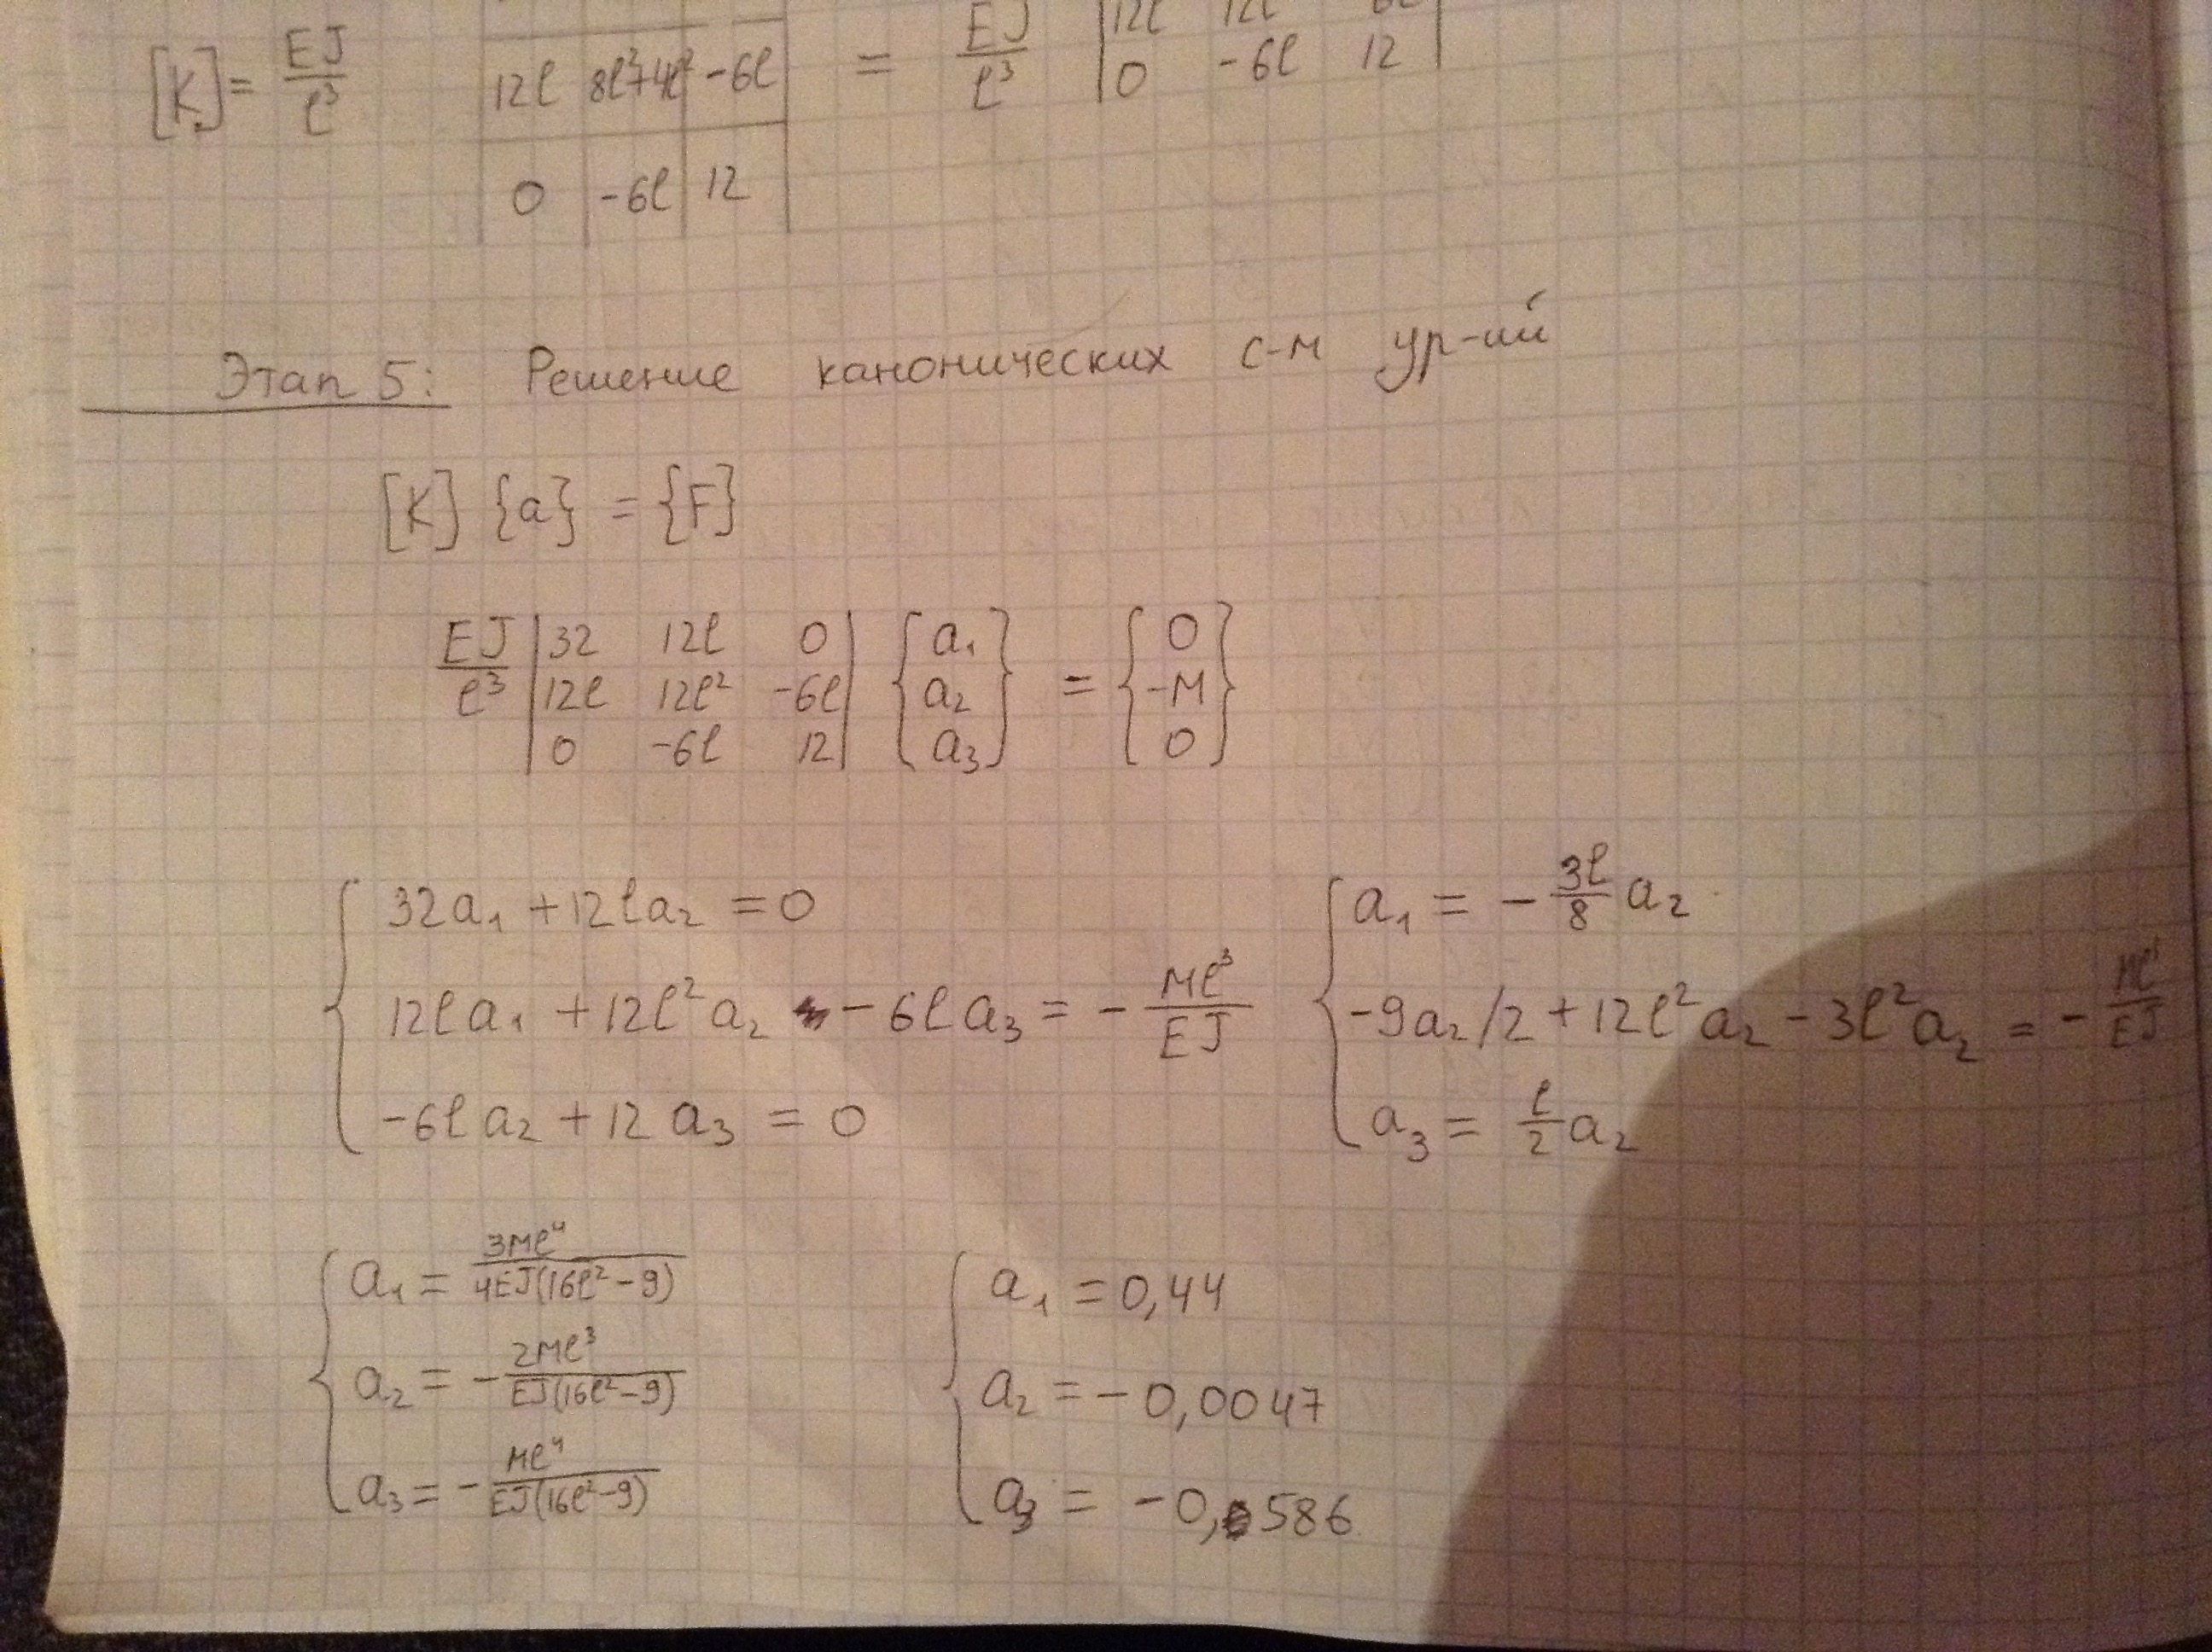 [K] = EJ/ℓ³ | 12ℓ | 8ℓ²+4ℓ² | -6ℓ | = EJ/ℓ³ | 12ℓ 12ℓ
0 | -6ℓ | 12 | 0 -6ℓ 12 |
Этап 5: Решение канонических с-м ур-ий
[K] {a} = {F}
EJ/ℓ³ | 32 12ℓ 0 | {a₁} = {0}
| 12ℓ 12ℓ² -6ℓ | {a₂} {-M}
| 0 -6ℓ 12 | {a₃} {0}
32a₁ + 12ℓa₂ = 0
12ℓa₁ + 12ℓ²a₂ - 6ℓa₃ = - Mℓ³/EJ
-6ℓa₂ + 12a₃ = 0
a₁ = - 3ℓ/8 a₂
-9a₂/2 + 12ℓ²a₂ - 3ℓ²a₂ = -
a₃ = ℓ/2 a₂
a₁ = 3Mℓ⁴/4EJ(16ℓ²-9)
a₂ = - 2Mℓ³/EJ(16ℓ²-9)
a₃ = - Mℓ⁴/EJ(16ℓ²-9)
a₁ = 0,44
a₂ = -0,0047
a₃ = -0,586